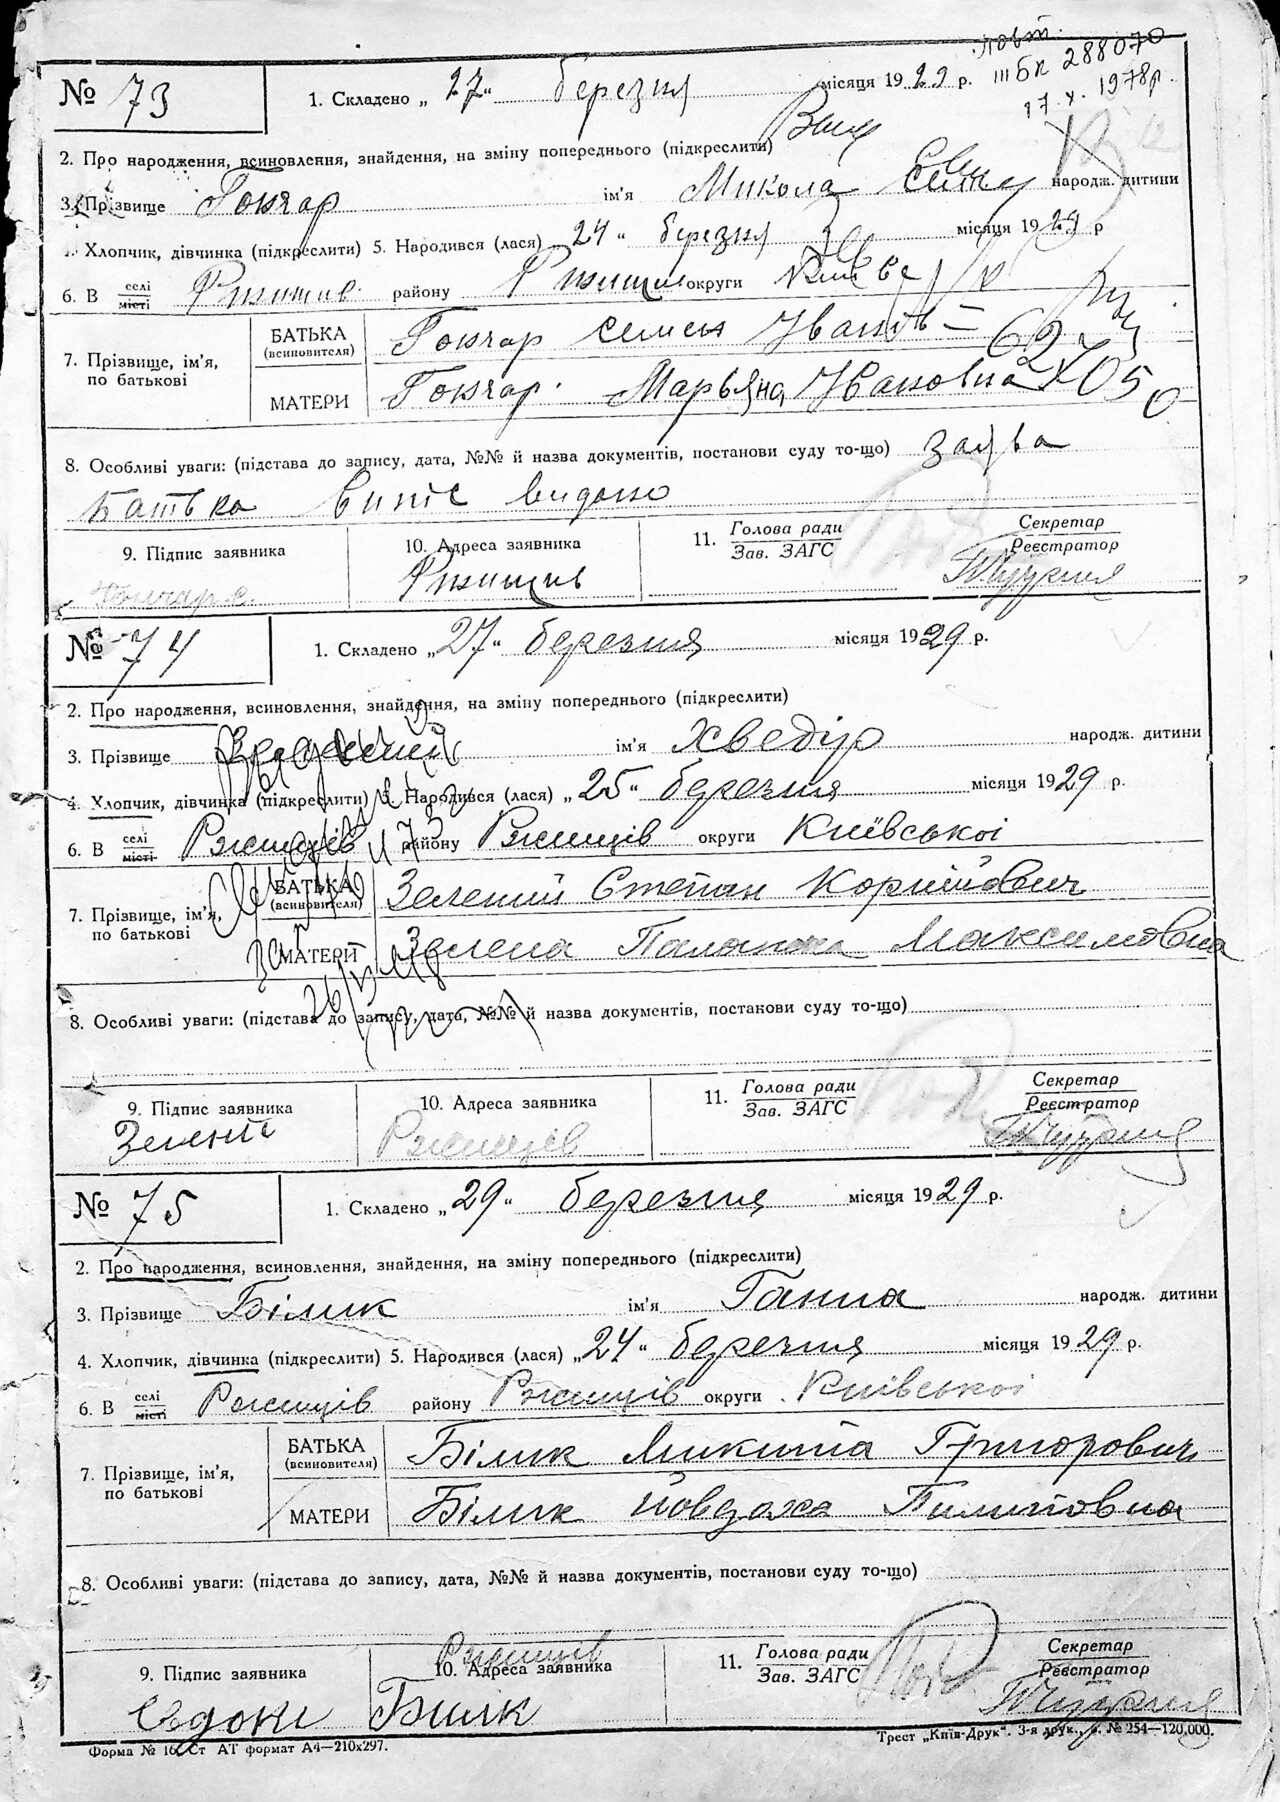 повт.
ІІІ БК 288070
17.X.1978р.
№ 73
1. Складено „27“ березня місяця 1929 р.
2. Про народження, всиновлення, знайдення, на зміну попереднього (підкреслити)
3. Прізвище Гончар ім'я Микола народж. дитини
4. Хлопчик, дівчинка (підкреслити) 5. Народився (лася) „24“ березня місяця 1929 р
6. В селі місті Ржищів району Ржищів округи
7. Прізвище, ім'я, по батькові
БАТЬКА (всиновителя) Гончар Семен Іванів
МАТЕРИ Гончар Марьяна Івановна
8. Особливі уваги: (підстава до запису, дата, №№ й назва документів, постанови суду то-що) заява
батька Випис видано
9. Підпис заявника 10. Адреса заявника 11. Голова ради Зав. ЗАГС Секретар Реєстратор
Гончар С. Ржищів
№ 74
1. Складено „27“ березня місяця 1929 р.
2. Про народження, всиновлення, знайдення, на зміну попереднього (підкреслити)
3. Прізвище ім'я Хведір народж. дитини
4. Хлопчик, дівчинка (підкреслити) 5. Народився (лася) „25“ березня місяця 1929 р.
6. В селі місті Ржищів району Ржищів округи Київської
7. Прізвище, ім'я, по батькові
БАТЬКА (всиновителя) Зелений Степан Корнійович
МАТЕРИ Зелена Палажка Максимовна
8. Особливі уваги: (підстава до запису, дата, №№ й назва документів, постанови суду то-що)
9. Підпис заявника 10. Адреса заявника 11. Голова ради Зав. ЗАГС Секретар Реєстратор
Ржищів
№ 75
1. Складено „29“ березня місяця 1929 р.
2. Про народження, всиновлення, знайдення, на зміну попереднього (підкреслити)
3. Прізвище Білик ім'я Ганна народж. дитини
4. Хлопчик, дівчинка (підкреслити) 5. Народився (лася) „24“ березня місяця 1929 р.
6. В селі місті Ржищів району Ржищів округи Київської
7. Прізвище, ім'я, по батькові
БАТЬКА (всиновителя) Білик Микита Григорович
МАТЕРИ Білик Йовдоха Пилиповна
8. Особливі уваги: (підстава до запису, дата, №№ й назва документів, постанови суду то-що)
Ржищів
9. Підпис заявника 10. Адреса заявника 11. Голова ради Зав. ЗАГС Секретар Реєстратор
Євдоки Билик
Форма № 16. Ст АТ формат А4—210х297.
Трест „Київ-Друк“. 3-я друк., з. № 254—120,000.